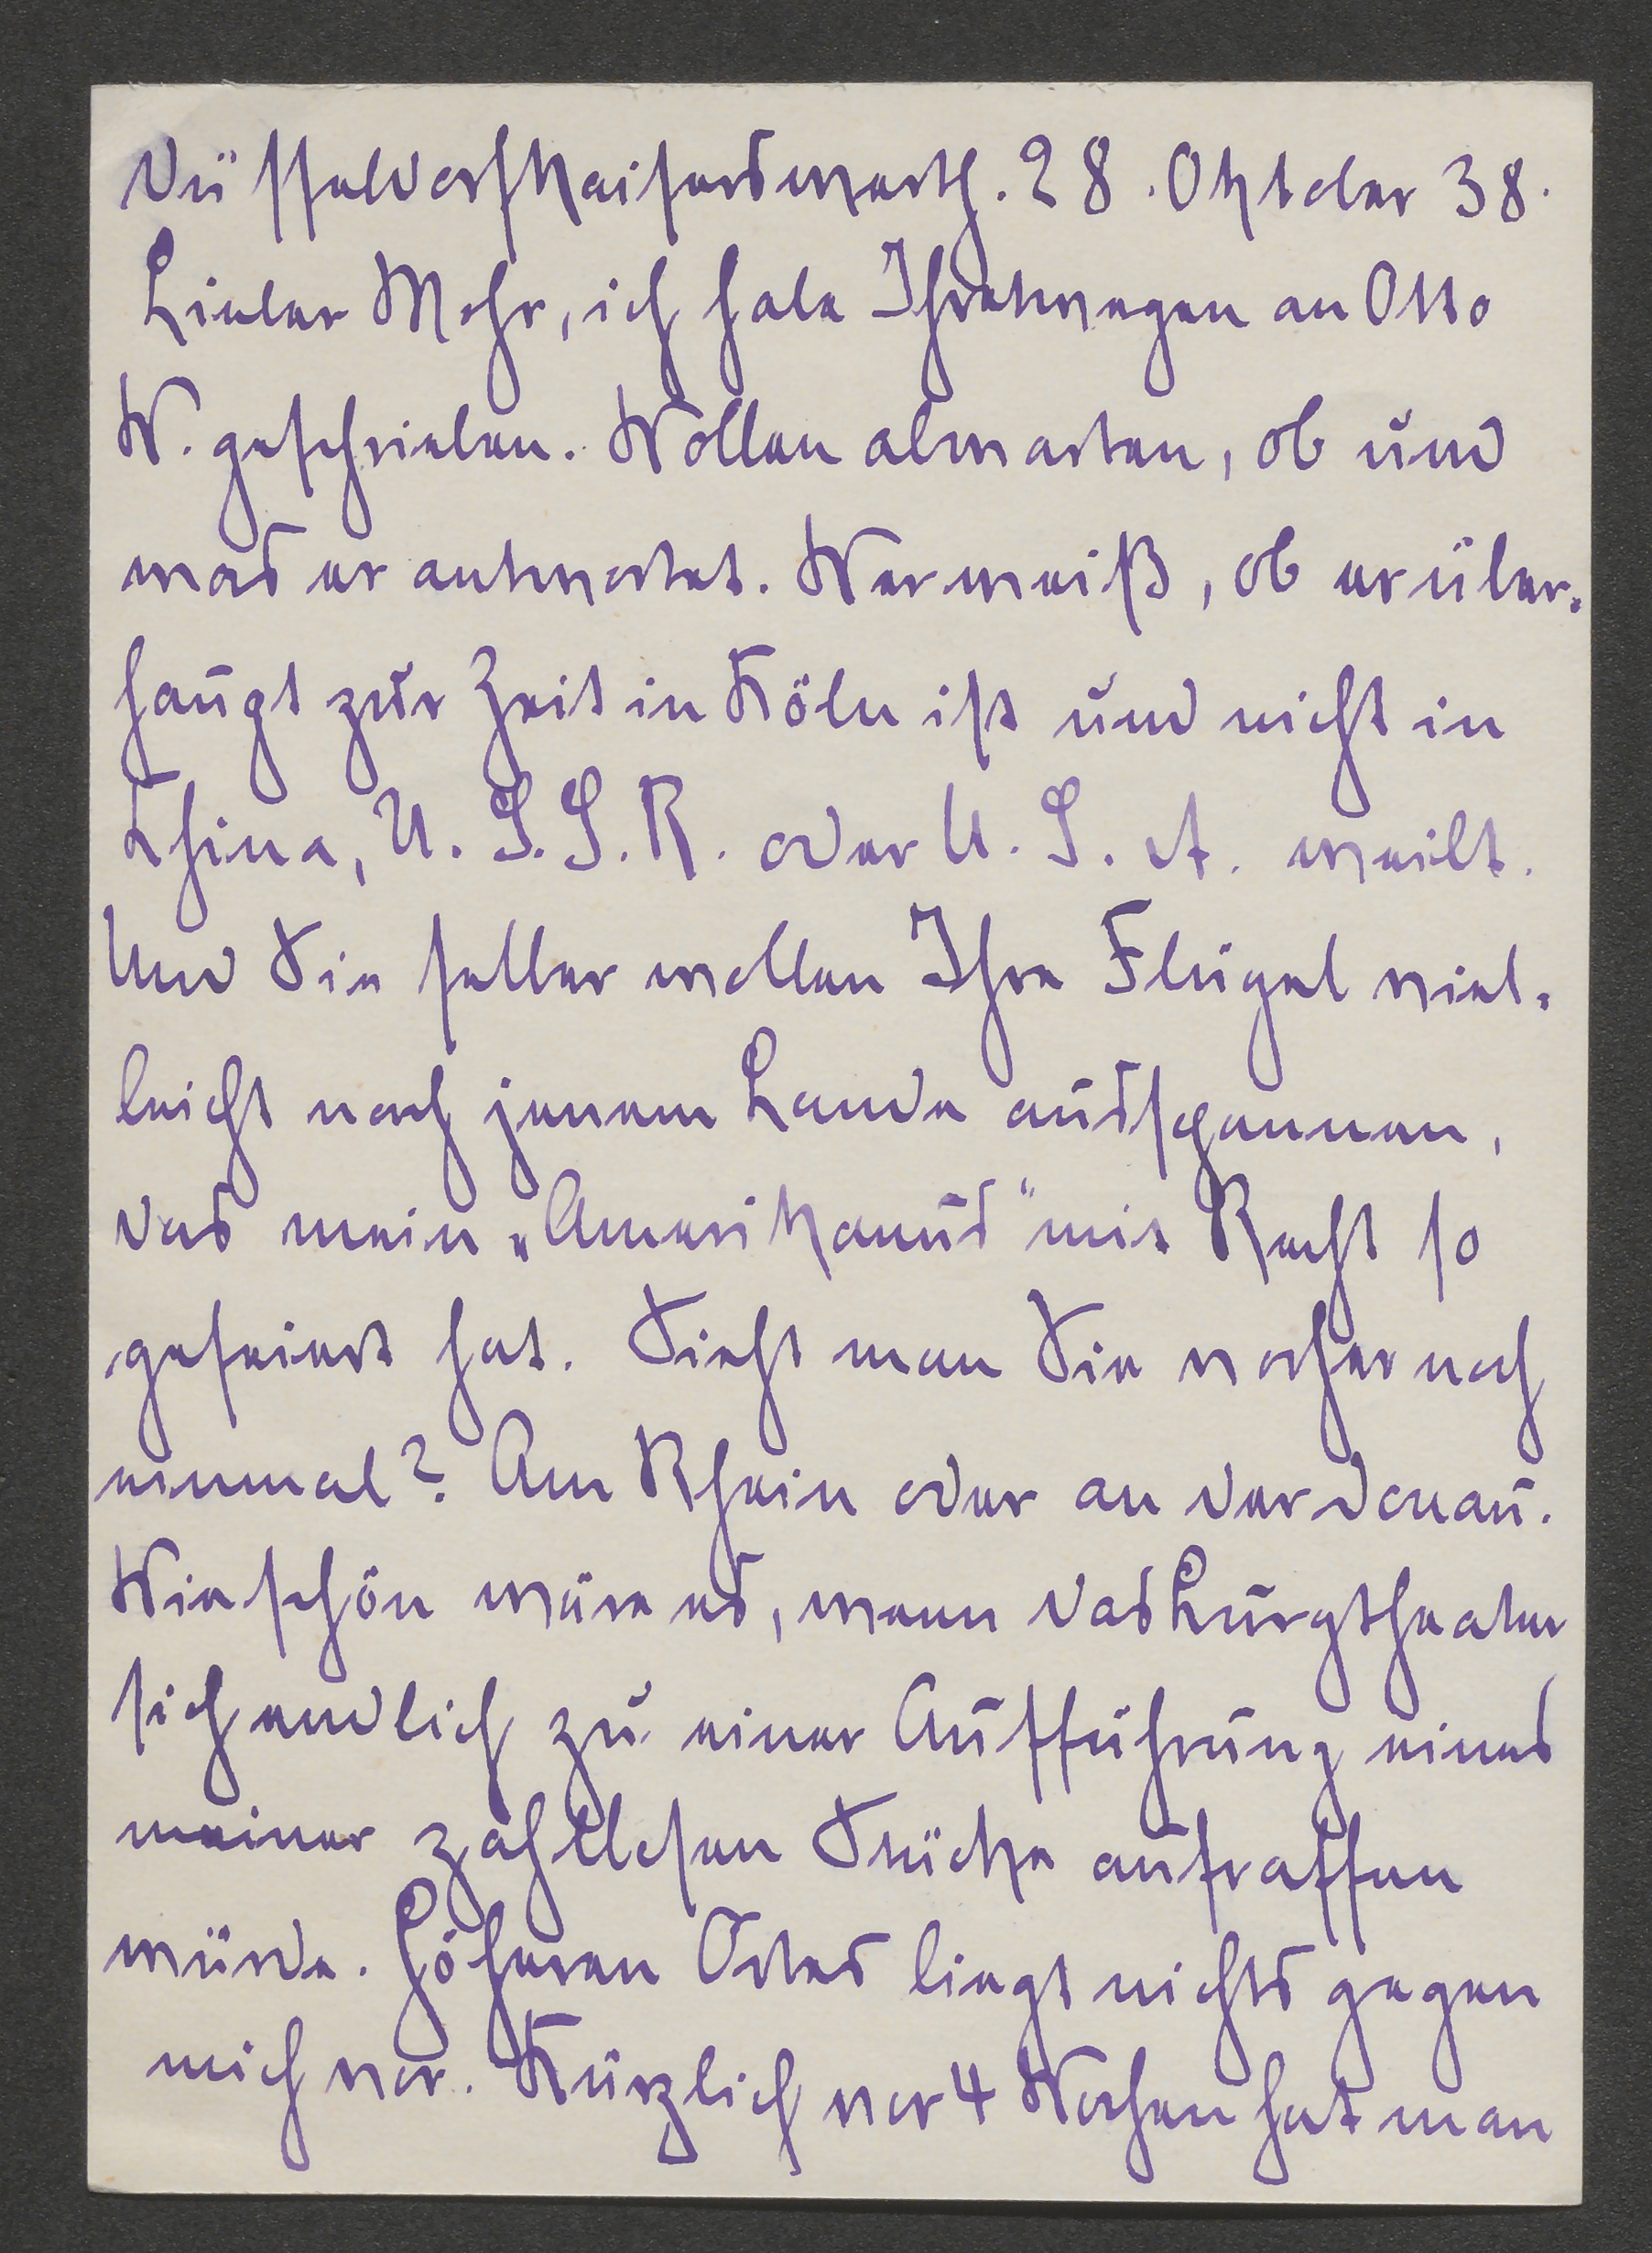 Düsseldorf Kaiserswerth. 28. Oktober 38.
Lieber Mohr, ich habe Ihretwegen an Otto
W. geschrieben. Wollen abwarten, ob und
was er antwortet. Wer weiß, ob er über-
haupt zur Zeit in Köln ist und nicht in
China, U.S.S.R. oder U.S.A. weilt.
Und Sie selber wollen Ihre Flügel viel-
leicht nach jenem Lande ausspannen,
das mein „Amerikanus" mit Recht so
gefeiert hat. Sieht man Sie vorher noch
einmal? Am Rhein oder an der Donau.
Wie schön wäre es, wenn das Burgtheater
sich endlich zu einer Aufführung eines
meiner zahllosen Stücke aufraffen
würde. Höheren Ortes liegt nichts gegen
mich vor. Kürzlich vor 4 Wochen hat man